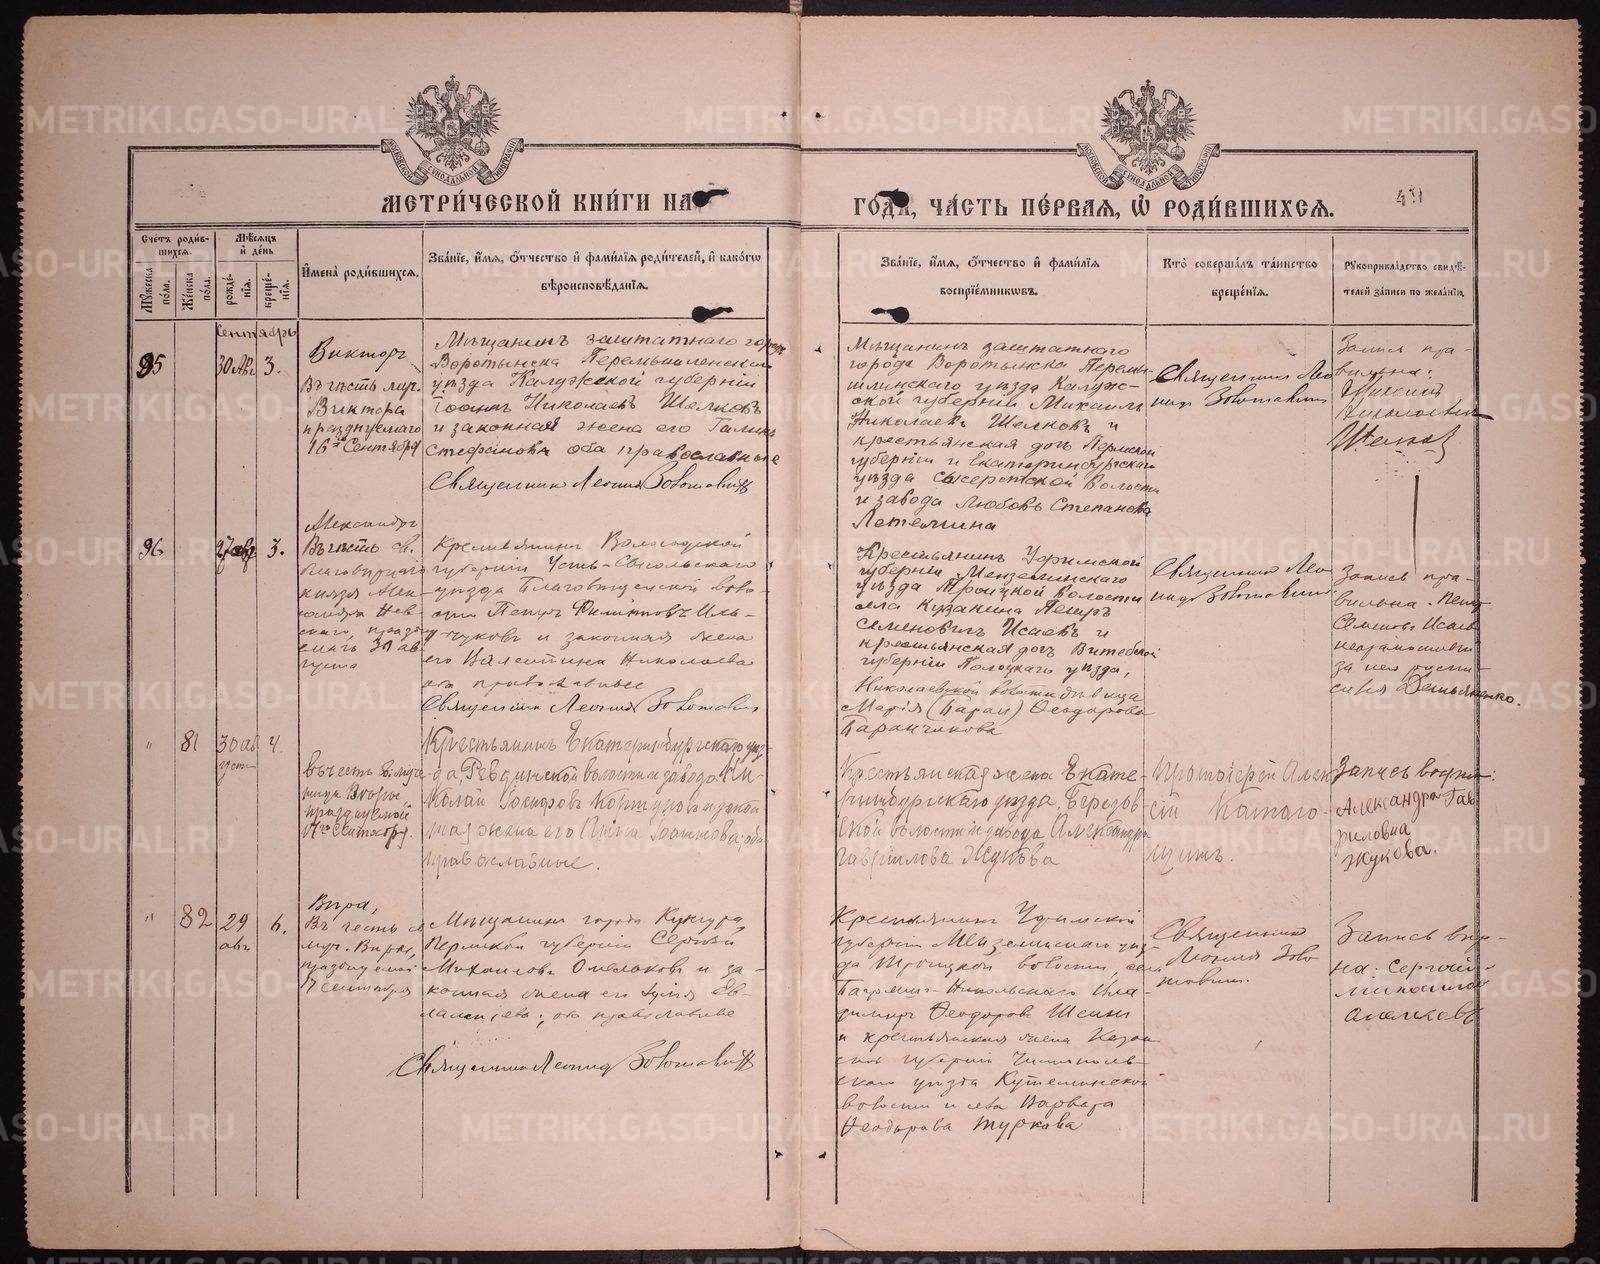 МЕТРИ́ЧЕСКОЙ КНИ́ГИ НА
ГОДЪ, ЧА́СТЬ ПЕ́РВАЯ, Ѡ РОДИ́ВШИХСЯ.
Сче́тъ роди́в-
шихся.
Мѣ́сяцъ
и҆ де́нь
Мꙋ́жеска
по́ла.
Же́нска
по́ла.
рожде́-
нїя.
креще́-
нїя.
И҆мена̀ роди́вшихся.
Зва́нїе, и҆́мя, ѻ҆́тчество и҆ фами́лїя роди́телей, и҆ како́гѡ
вѣроисповѣ́данїя.
Зва́нїе, и҆́мя, ѻ҆́тчество и҆ фами́лїя
воспрїе́мникѡвъ.
Кто̀ соверша́лъ та́инство
креще́нїя.
Рꙋкоприкла́дство свидѣ́-
телей за́писи по жела́нїю.
Сентябрь
95
30 Авг.
3.
Викторъ
Въ честь муч.
Виктора
празднуемаго
16го Сентября
Мѣщанинъ заштатнаго города
Воротынска Перемышленскаго
уѣзда Калужской губерніи
Іоаннъ Николаевъ Шелковъ
и законная жена его Галина
Стефанова оба православные
Священникъ Леонидъ
Мѣщанинъ заштатнаго
города Воротынска Перемы-
шлинскаго уѣзда Калуж-
ской губерніи Михаилъ
Николаевъ Шелковъ и
крестьянская дочь Пермской
губерніи и Екатеринбургскаго
уѣзда Сысертской волости
и завода Любовь Степанова
Летемина
Священникъ Лео-
нидъ
Запись пра-
вильна:
Михаилъ
Николаевичъ
Шелковъ
96
27 авг
3.
Александръ
Въ честь св.
благовѣрнаго
князя Алек-
сандра Нев-
скаго, празд-
емаго 30 ав
густа
Крестьянинъ Вологодской
губерніи Усть-Сысольскаго
уѣзда Благовѣщенской воло-
сти Петръ Филиповъ Иль-
чуковъ и законная жена
его Валентина Николаева
оба православные
Священникъ Леонидъ
Крестьянинъ Уфимской
губерніи Мензелинскаго
уѣзда Троицкой волости
села Кузакина Петръ
Семеновичъ Исаевъ и
крестьянская дочь Витебской
губерніи Полоцкаго уѣзда,
Николаевской волости дѣвица
Марія Феодорова
Таранчикова
Священникъ Лео-
нидъ
Запись пра-
вильна. Петръ
Семеновъ Исаевъ
неграмотный
за него роспи-
сался Демьяненко.
"
81
30 ав
густ
4.
въ честь св. муче-
ницы Вѣры,
празднуемой
17го Сентября.
Крестьянинъ Екатеринбургскаго уѣз-
да Ревдинской волости и завода Ни-
колай Іосифовъ и закон-
ная жена его Анна Іоаннова; оба
православные.
Крестьянская жена Екате-
ринбургскаго уѣзда, Березов-
ской волости и завода Александра
Гаврилова Жукова
Протоіерей Алек
сій
Запись вѣрна:
Александра Гав
риловна
Жукова.
"
82
29
авг
6.
Вѣра,
Въ честь св
муч. Вѣры,
празднуемой
17 сентября
Мѣщанинъ города Кунгура,
Пермской губерніи Сергій
Михаиловъ Омелковъ и за-
конная жена его Юлія Ев-
лампіева; оба православные
Священникъ Леонидъ
Крестьянинъ Уфимской
губерніи Мензелинскаго уѣз-
да Троицкой волости, села
Николаевскаго Вла-
димиръ Феодоровъ Шеинъ
и крестьянская жена Казан
ской губерніи Чистополь-
скаго уѣзда Кутеминской
волости и села Варвара
Феодорова Туркова
Священникъ
Леонидъ
Запись вѣр-
на: Сергѣй
Михаиловъ
Омелковъ
METRIKI.GASO-URAL.RU